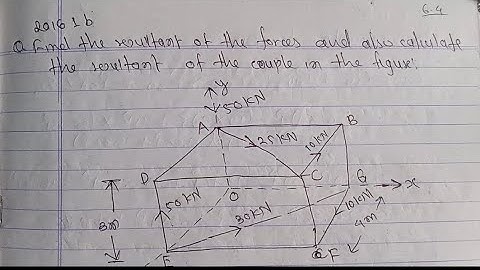 2016 1 b
6.4
Q Find the resultant of the forces and also calculate
the resultant of the couple in the figure:
y
50KN
A
B
25KN
10KN
D
C
50KN
O
G
x
3m
30KN
10KN
4m
E
F